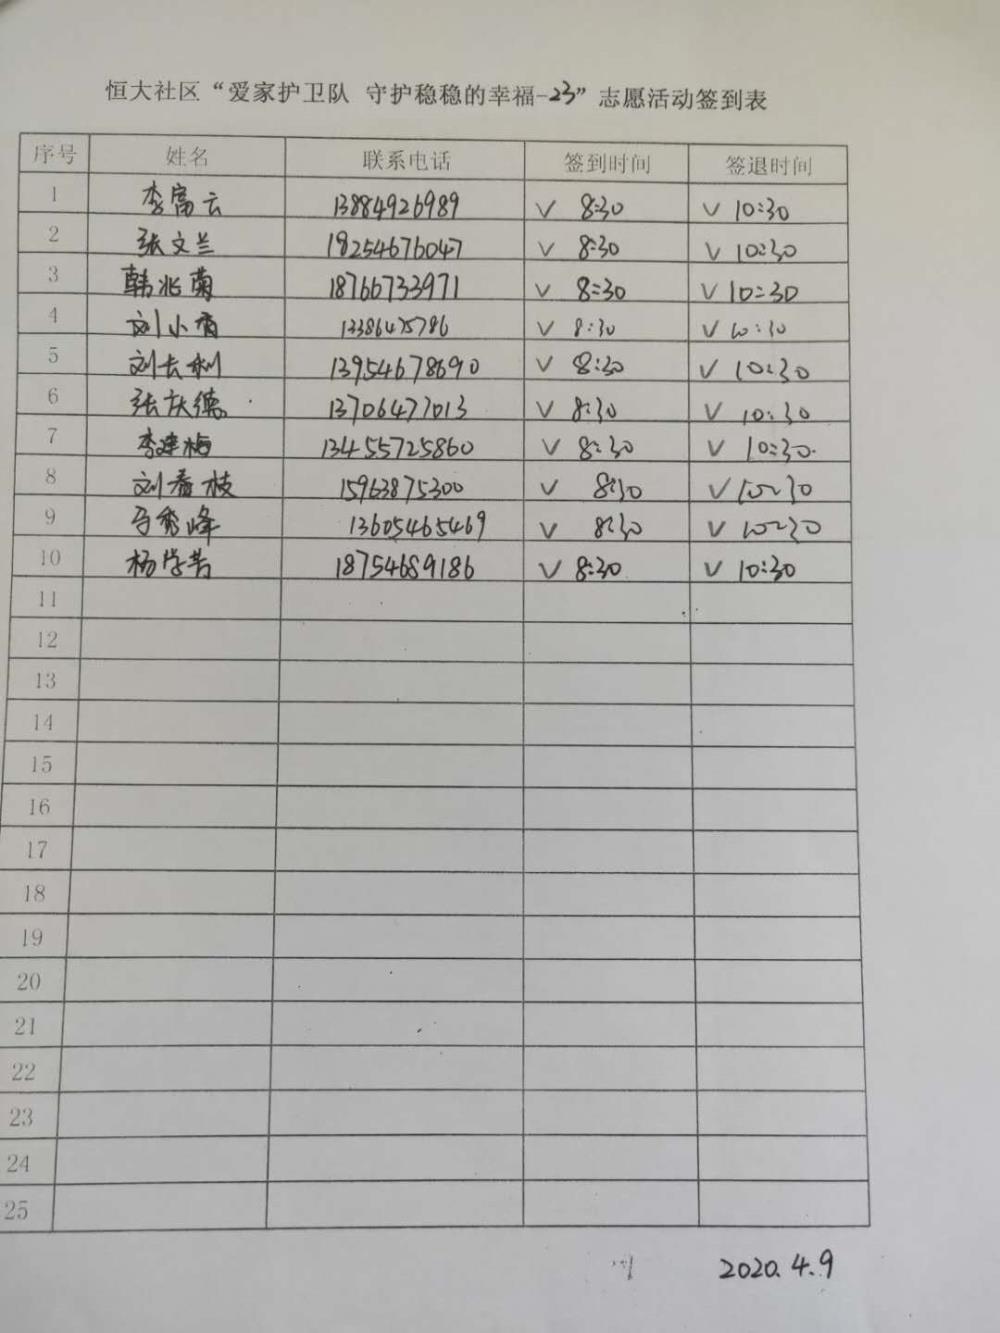 恒大社区“爱家护卫队 守护稳稳的幸福-23”志愿活动签到表
序号 姓名 联系电话 签到时间 签退时间
1 李富云 13884926989 √ 8:30 √ 10:30
2 张文兰 18254676047 √ 8:30 √ 10:30
3 韩兆菊 18766733971 √ 8:30 √ 10:30
4 刘小 √ 8:30 √ 10:30
5 刘长利 13954678690 √ 8:30 √ 10:30
6 张庆德 13706477013 √ 8:30 √ 10:30
7 李建梅 13455725860 √ 8:30 √ 10:30
8 刘春枝 15963875300 √ 8:30 √ 10:30
9 马秀峰 13605465469 √ 8:30 √ 10:30
10 杨学芳 18754689186 √ 8:30 √ 10:30
11
12
13
14
15
16
17
18
19
20
21
22
23
24
25
2020.4.9